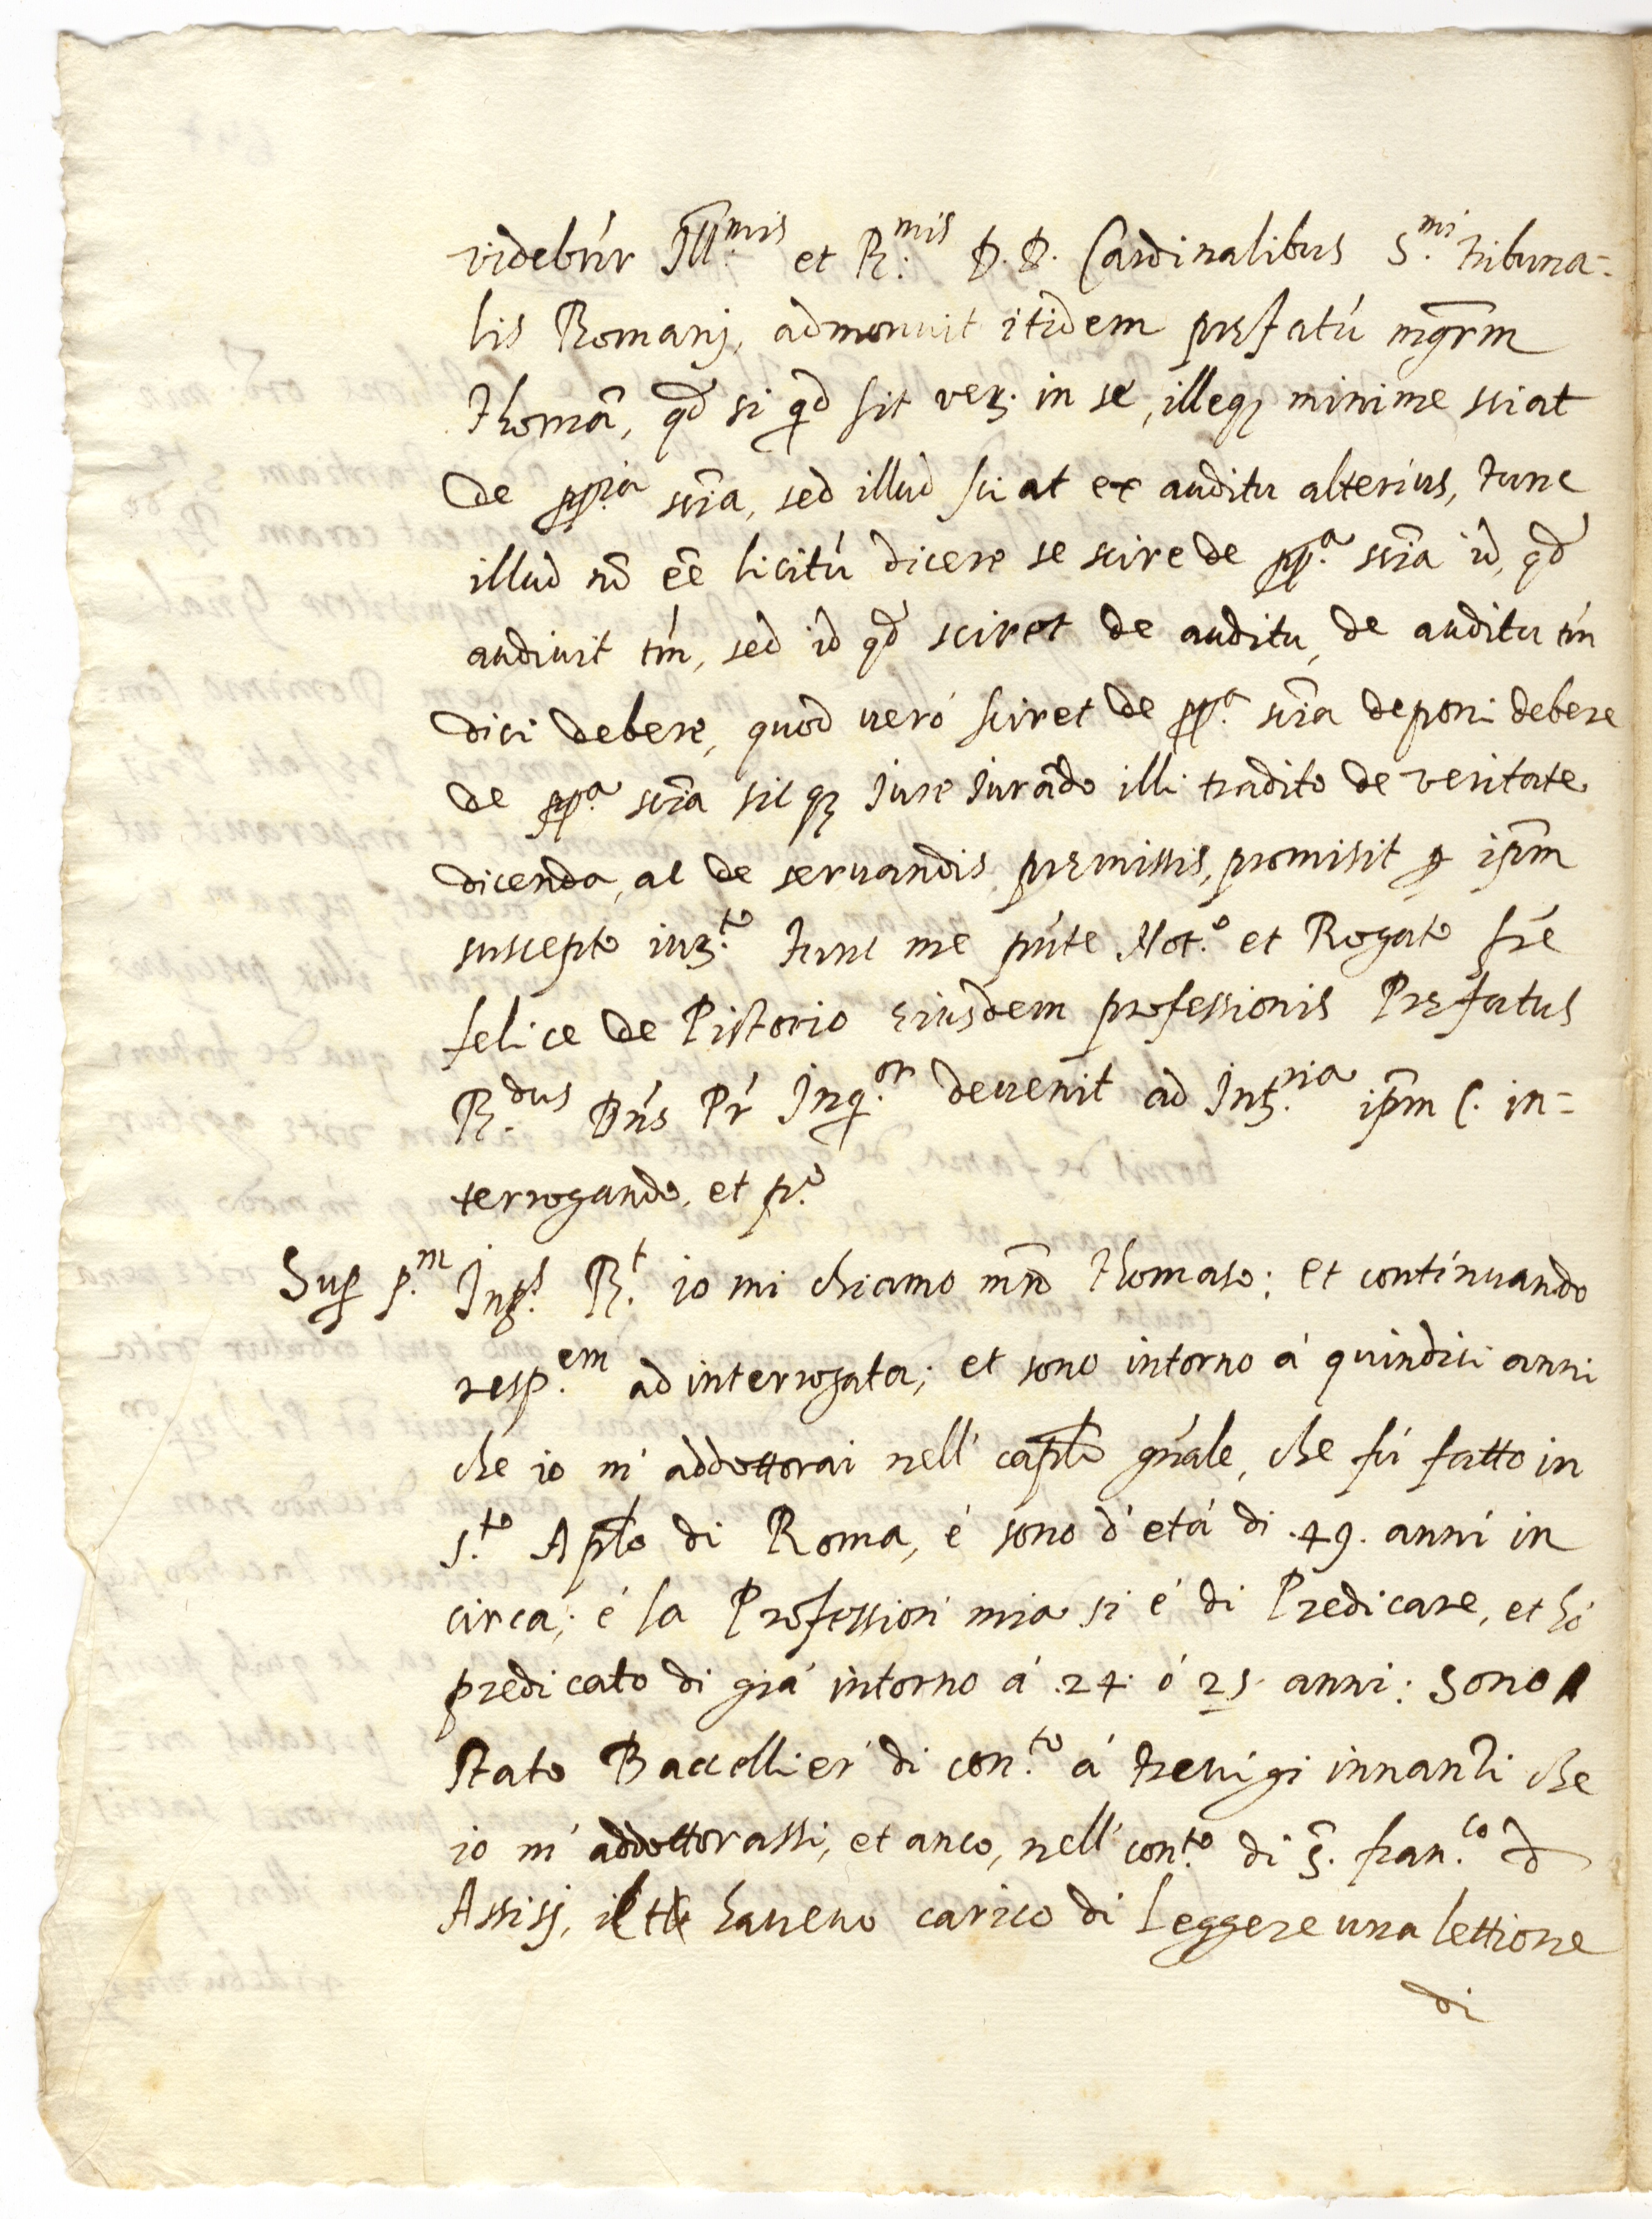 videbũr Ill.mis et R.mis D.D. Cardinalibus S.mi tribuna=
lis Romanj, admonuit itidem prefatú mgrm̃
Thomã, qd̃ si qd̃ sit verʒ. in se, illeqʒ minime sciat
de pp.ia sciã, sed illud sciat ex auditu alterius, tunc
illud nõ eẽ licitú dicere se scire de pp.a sciã id, qd̃
audiuit tm̃, sed id qd̃ sciret de auditu, de auditu tm̃
dici debere, quod ueró sciret de pp.a sciã deponi debere
de pp.a sciã sicqʒ Jure Jurãdo illi tradito de veritate
dicenda, ac de seruandis premissis, promisit p ipm̃
suscepto iurʒ.to tunc me pñte Not.o et Rogato frẽ
felice de Pistorio eiusdem professionis Prefatus
R.dus Dñs Pr̃ Inq.or deuenit ad Intʒ.ria ipm̃ C. in=
terrogando, et p.o
Sup p.m Int.s R.t io mi chiamo mrõ Thomaso; et continuando
resp.em ad interrogata; et sono intorno á quindici anni
che io m' addottorai nell' caplõ gñale, che fú fatto in
s.to Aplõ di Roma, é sono d' etá di .49. anni in
circa; é la Profession' mia si é di Predicare, et hó
predicato di giá intorno á .24. ó 25. anni: Sono
stato Baccellier' di con.to á treuigi innanti che
io m' addottorassi, et anco, nell' con.to di S. fran.co d
Assisj, haueuo carico di Leggere una lettione
di